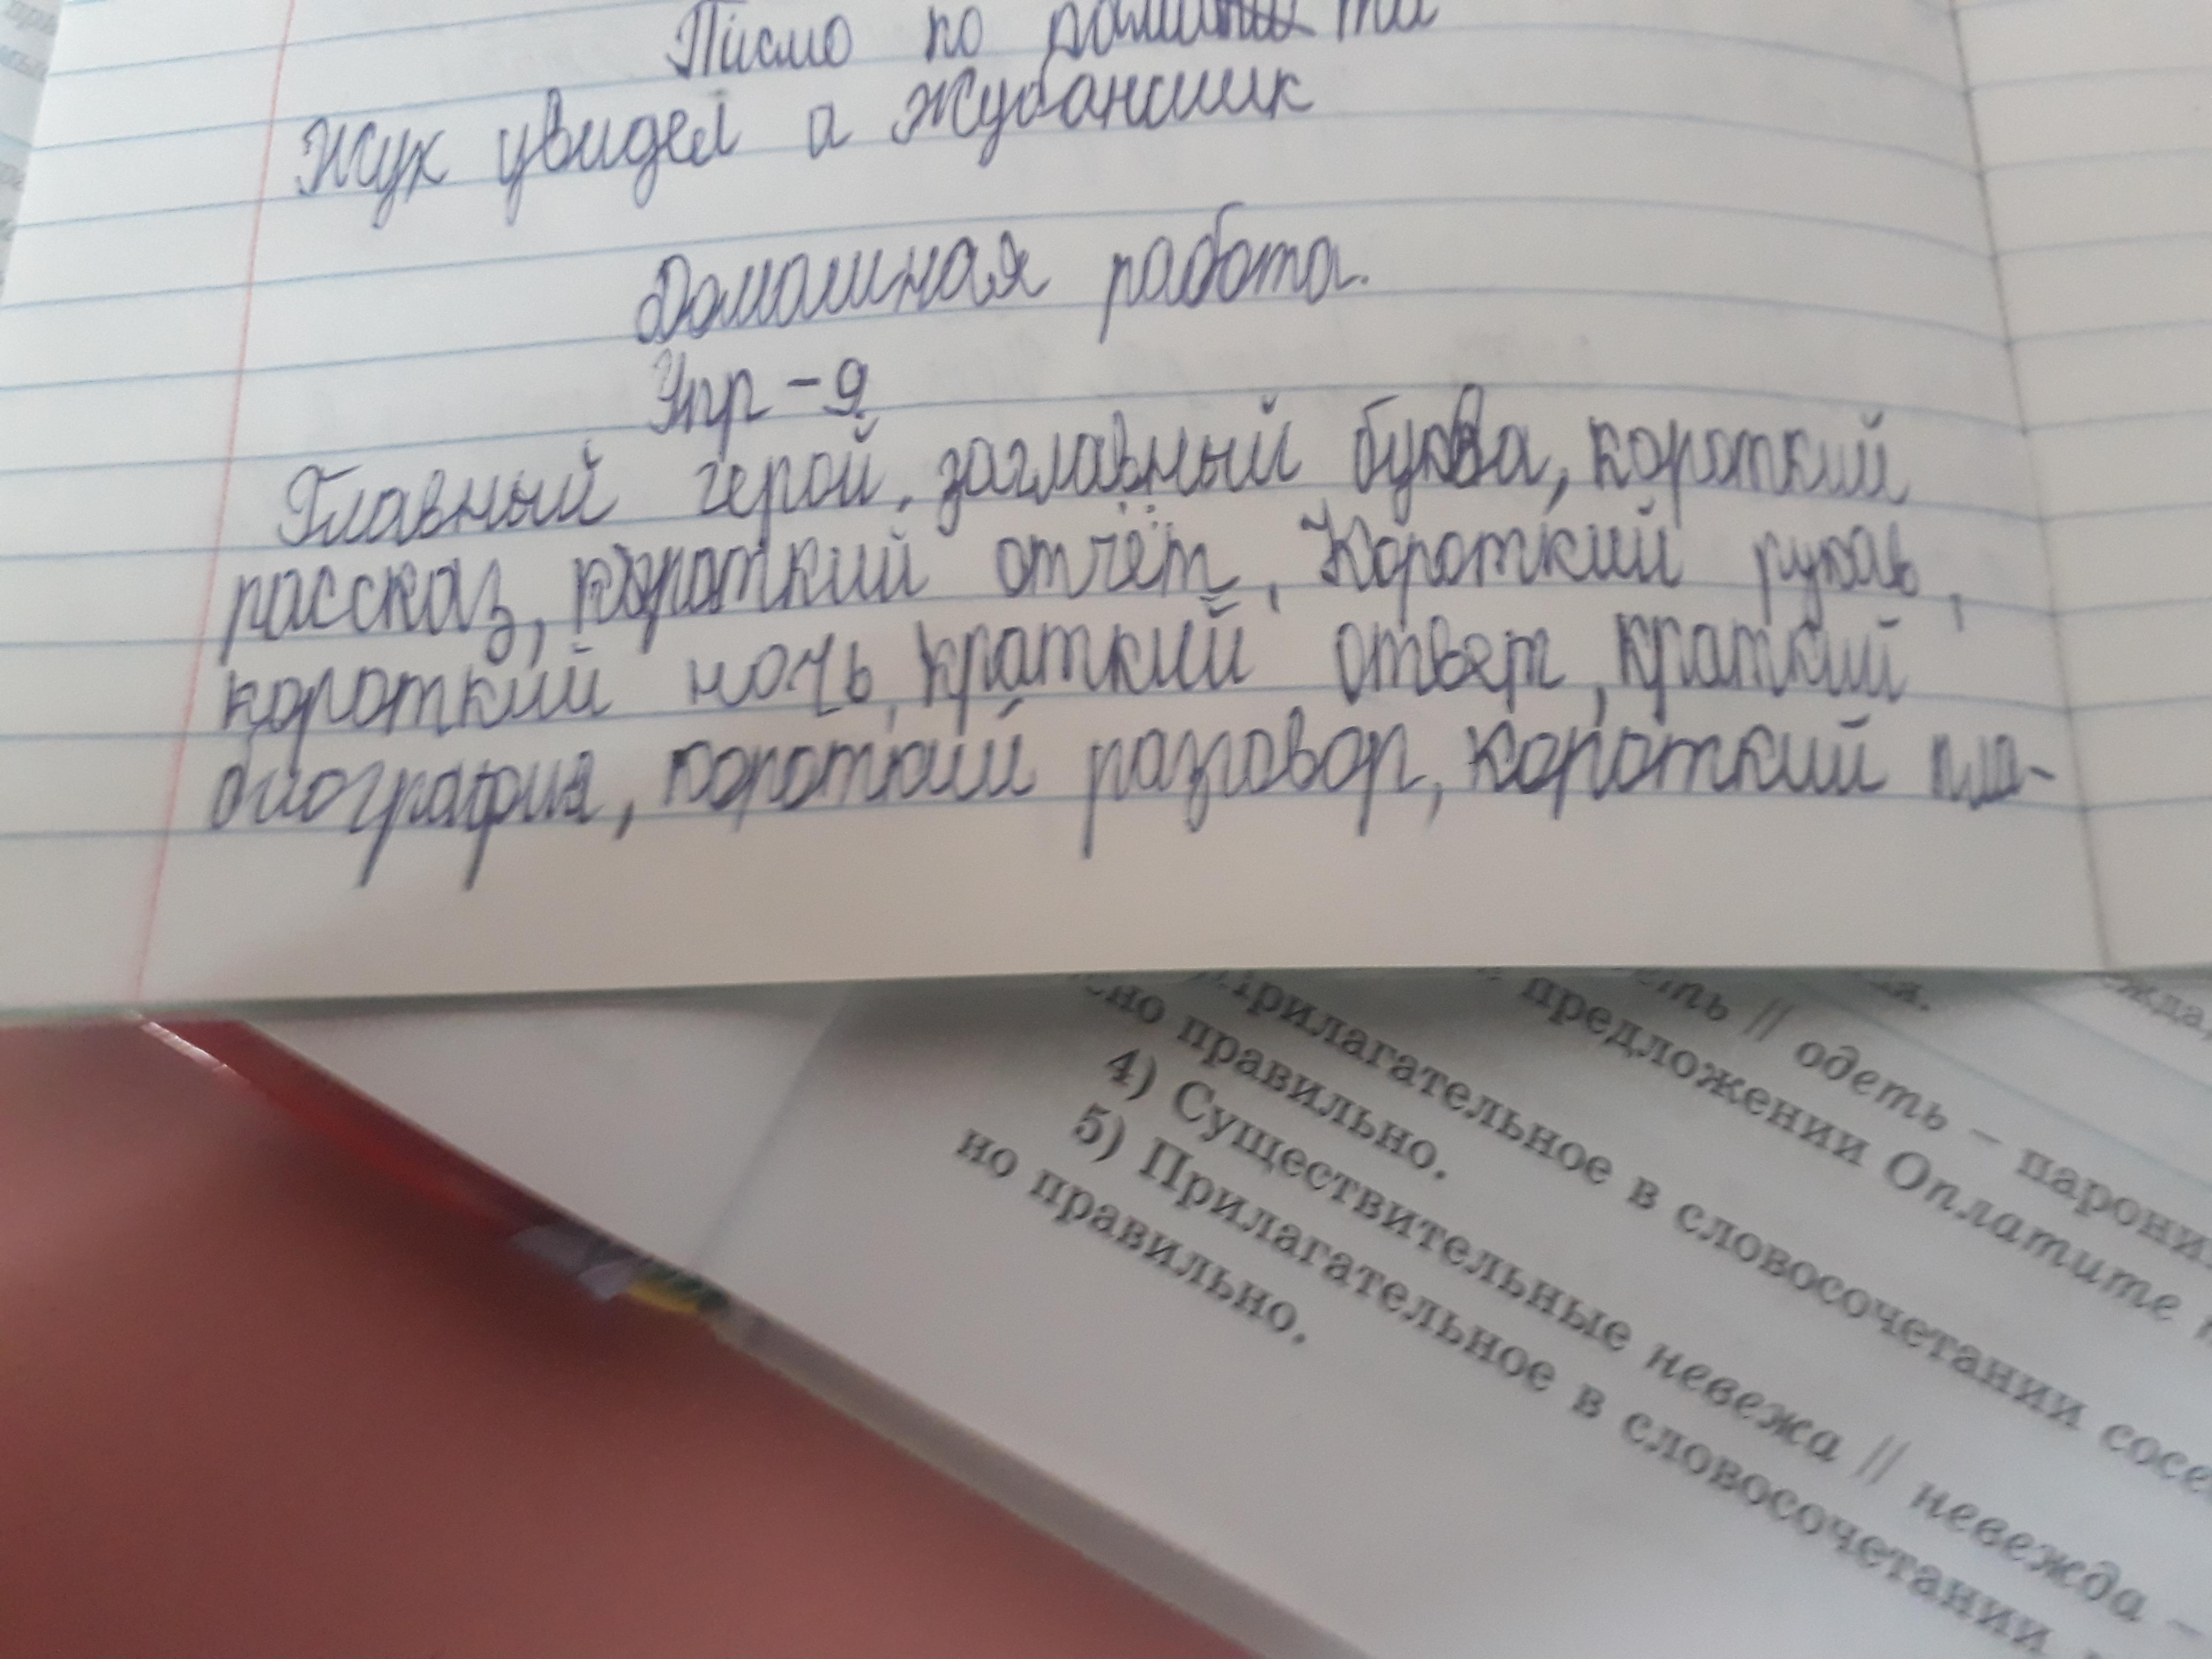 Писмо по памяти
Жук увидел а
Домашная работа.
Упр-9
Главный герой, заглавный буква, короткий
рассказ, короткий отчёт, Короткий рукав,
короткий ночь, краткий ответ, краткий
биография, короткий разговор, короткий пла-
еть // одеть – парони
предложении Оплатите
Прилагательное в словосочетании сосе
но правильно.
4) Существительные невежа // невежда –
5) Прилагательное в словосочетании
но правильно.